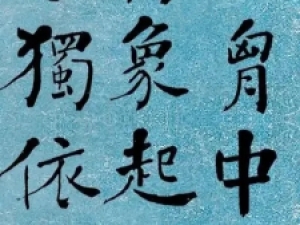 胷中
象起
獨依